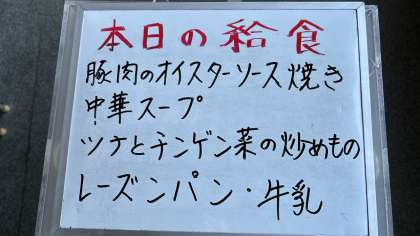 本日の給食
豚肉のオイスターソース焼き
中華スープ
ツナとチンゲン菜の炒めもの
レーズンパン・牛乳